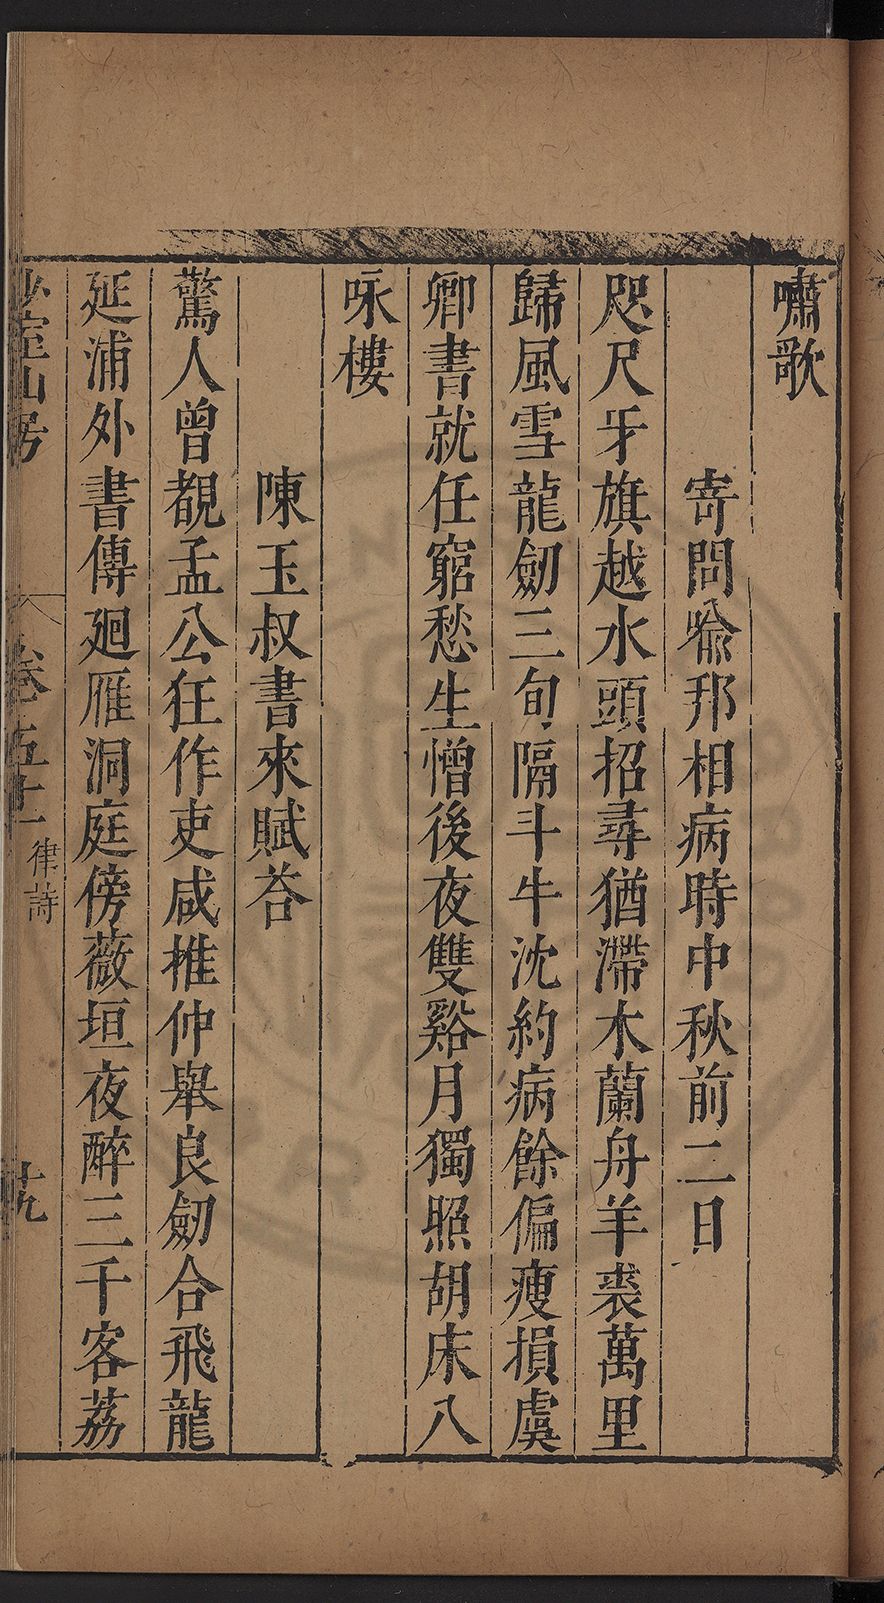 嘯歌
寄問喩邦相病時中秋前二日
咫尺牙旗越水頭招尋猶滯木蘭舟羊裘萬里
歸風雪龍劒三旬隔斗牛沈約病餘偏瘦損虞
卿書就任窮愁生憎後夜雙谿月獨照胡床八
咏樓
陳玉叔書來賦荅
驚人曾覩孟公狂作吏咸推仲舉良劒合飛龍
延浦外書傳廻雁洞庭傍薇垣夜醉三千客荔
少室山房
卷五十一
律詩
十九